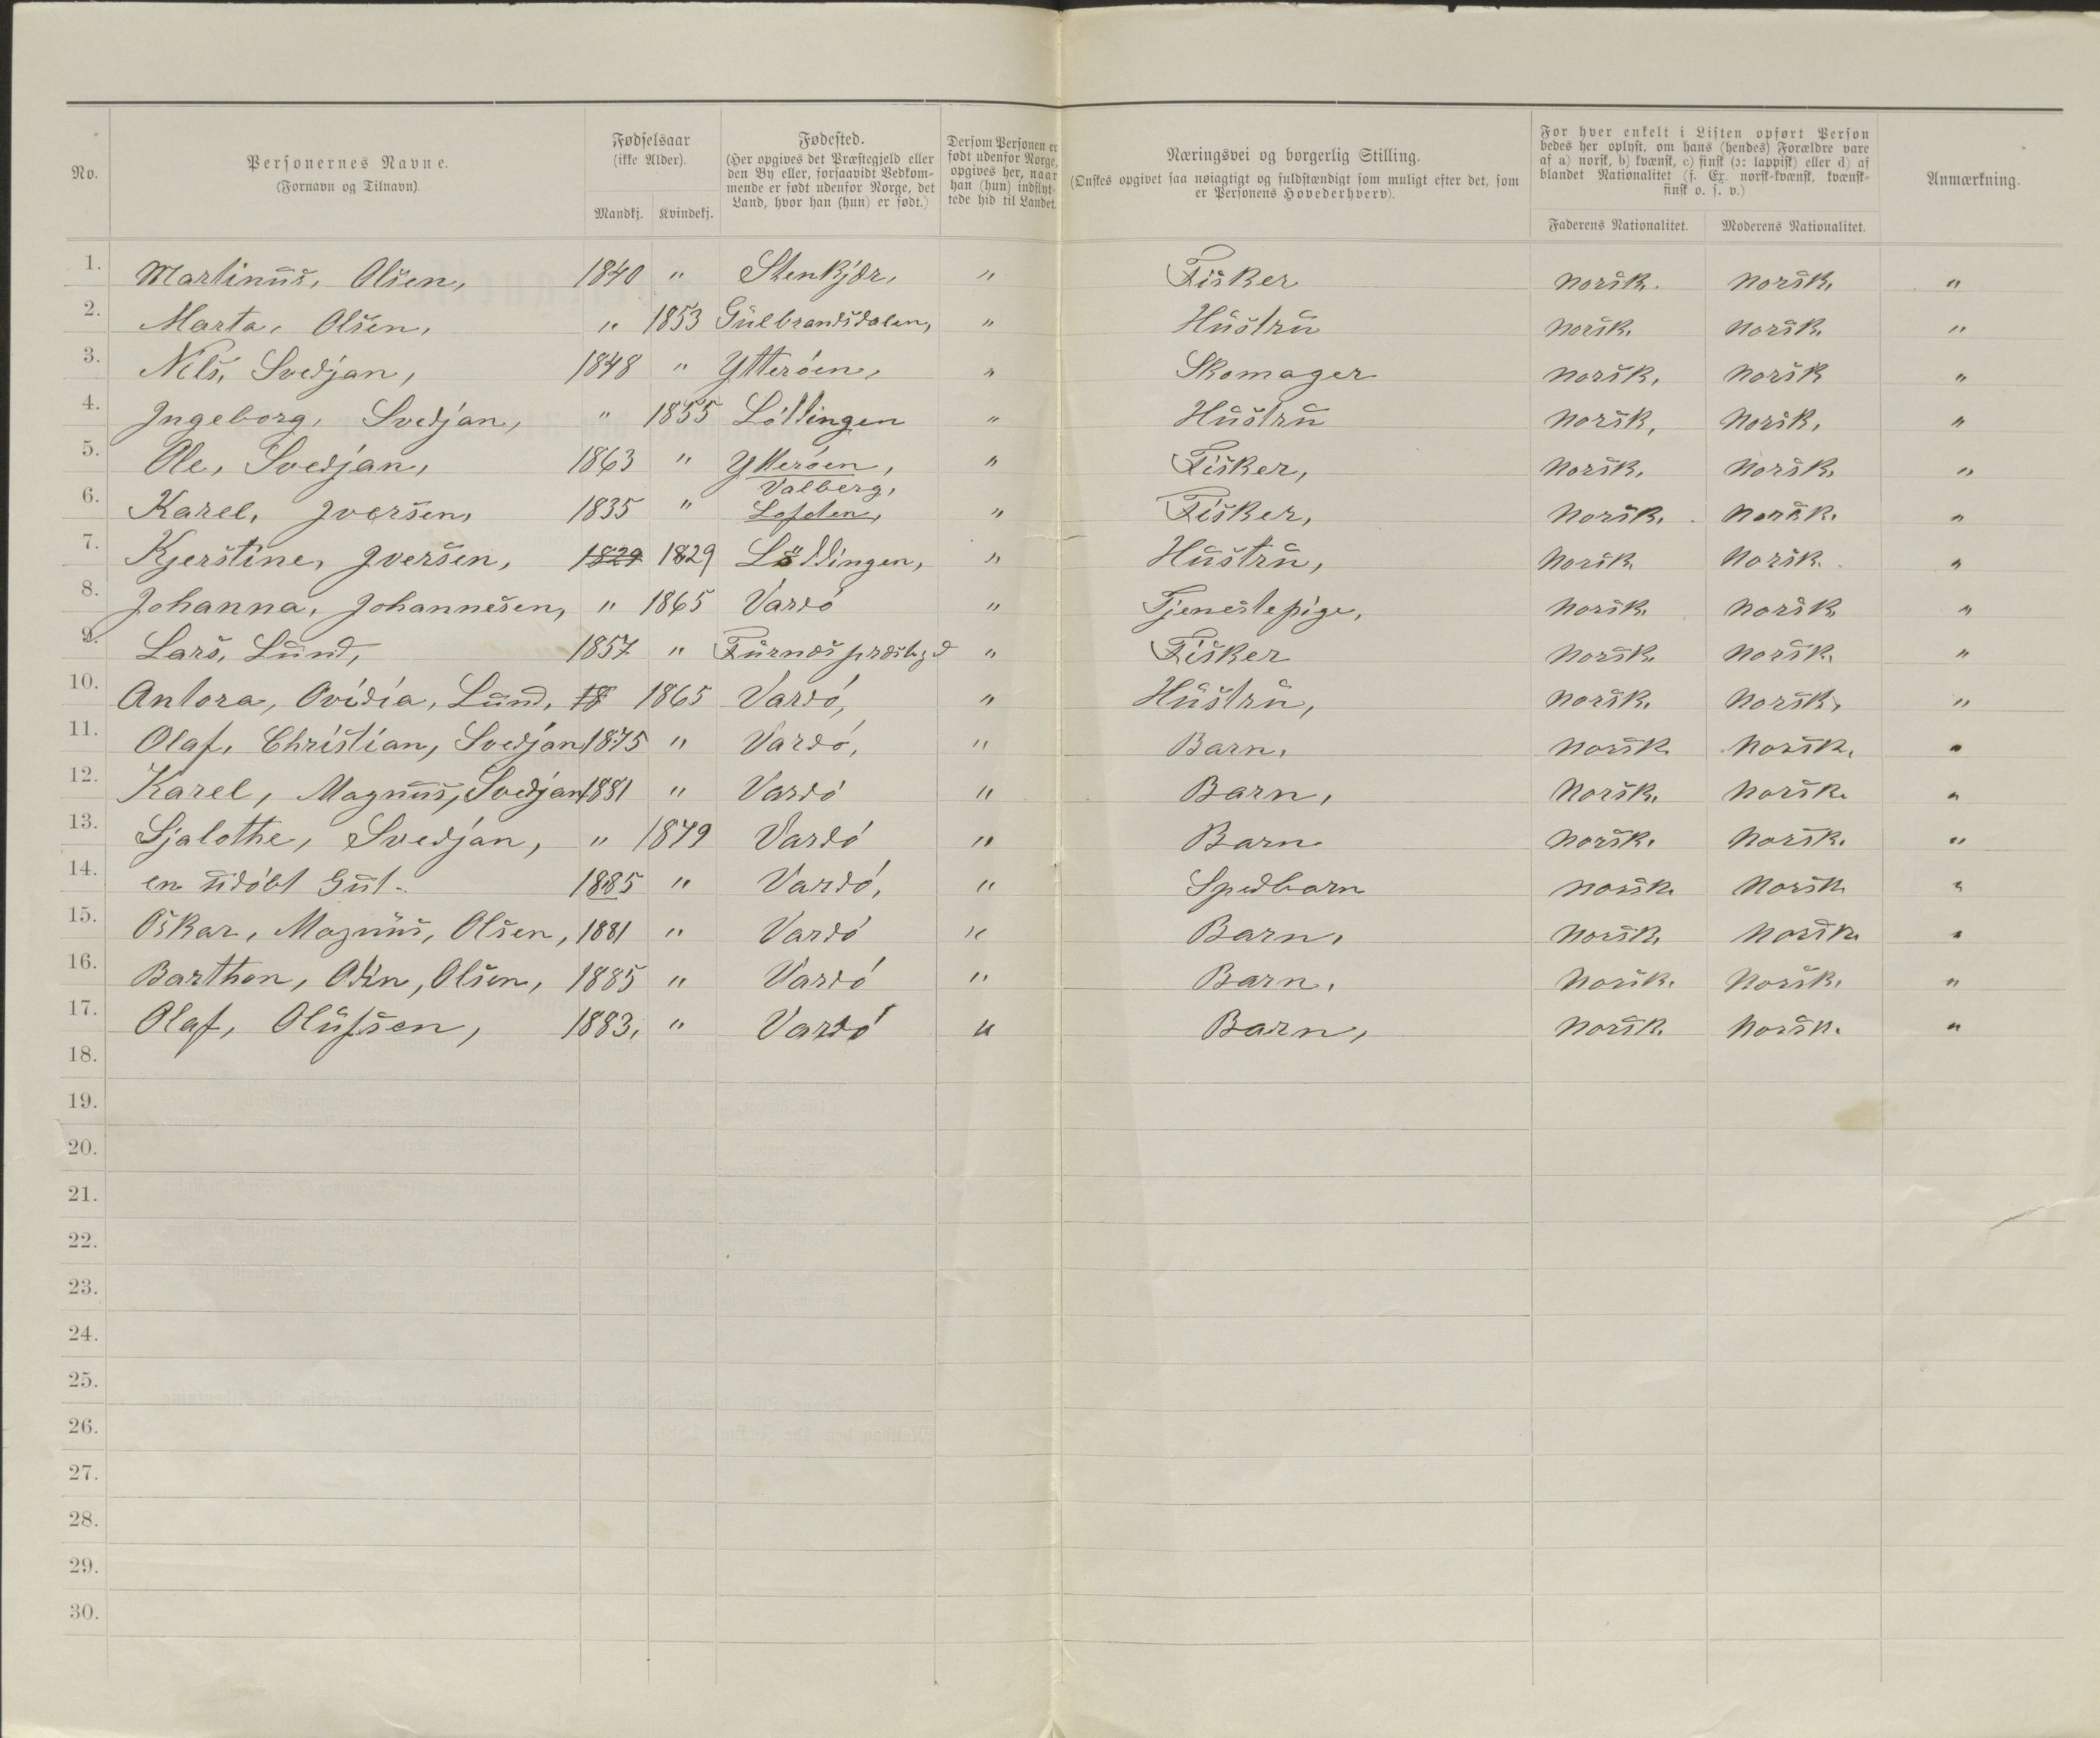 No.
Personernes Navne.
(Fornavn og Tilnavn).
Fødselsaar
(ikke Alder).
Mandkj. Kvindekj.
Fødested.
(Her opgives det Præstegjeld eller
den By eller, forsaavidt Vedkom-
mende er født udenfor Norge, det
Land, hvor han (hun) er født.)
Dersom Personen er
født udenfor Norge,
opgives her, naar
han (hun) indflyt-
tede hid til Landet.
Næringsvei og borgerlig Stilling.
(Ønskes opgivet saa nøiagtigt og fuldstændigt som muligt efter det, som
er Personens Hovederhverv).
For hver enkelt i Listen opført Person
bedes her oplyst, om hans (hendes) Forældre vare
af a) norsk, b) kvænsk, c) finsk (ɔ: lappisk) eller d) af
blandet Nationalitet (f. Ex. norsk-kvænsk, kvænsk-
finsk o. s. v.)
Faderens Nationalitet. Moderens Nationalitet.
Anmærkning.
1. Martinus, Olsen, 1840 " Stenkjær, " Fisker norsk. norsk, "
2. Marta, Olsen, " 1853 Gulbrandsdalen, " Hustru norsk. norsk. "
3. Nils, Svedjan, 1848 " Ytterøen, " Skomager norsk, norsk "
4. Ingeborg, Svedjan, " 1855 Lóddingen " Hustru norsk, norsk, "
5. Ole, Svedjan, 1863 " Ytterøen, " Fisker, norsk, norsk, "
Valberg,
6. Karel, Iversen, 1835 " Lofoten, " Fisker, norsk. norsk. "
7. Kjerstine, Iversen, 1829 1829 Löddingen, " Hustru, norsk norsk. "
8. Johanna, Johannesen, " 1865 Vardó " Tjenestepige, norsk norsk "
9. Lars, Lund, 1857 " Furnæs præstegd " Fisker norsk norsk. "
10. Antora, Ovidia, Lund, 18 1865 Vardó, " Hustru, norsk. norsk, "
11. Olaf, Christian, Svedjan 1875 " Vardó, " Barn, norsk norsk. "
12. Karel, Magnus, Svedjan 1881 " Vardó " Barn, norsk. norsk. "
13. Sjalothe, Svedjan, " 1879 Vardó " Barn norsk. norsk. "
14. en udóbt Gut. 1885 " Vardó, " Spedbarn norsk. norsk "
15. Oskar, Magnus, Olsen, 1881 " Vardó " Barn, norsk norsk "
16. Barthon, Odin, Olsen, 1885 " Vardó " Barn, norsk. norsk. "
17. Olaf, Olufsen, 1883, " Vardó " Barn, norsk. norsk. "
18.
19.
20.
21.
22.
23.
24.
25.
26.
27.
28.
29.
30.